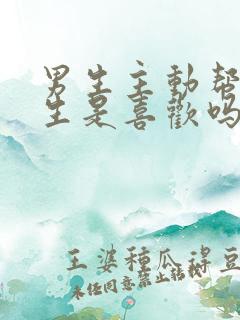 男生主動幫
生是喜歡嗎
王婆種瓜得豆
未任同意禁止轉載